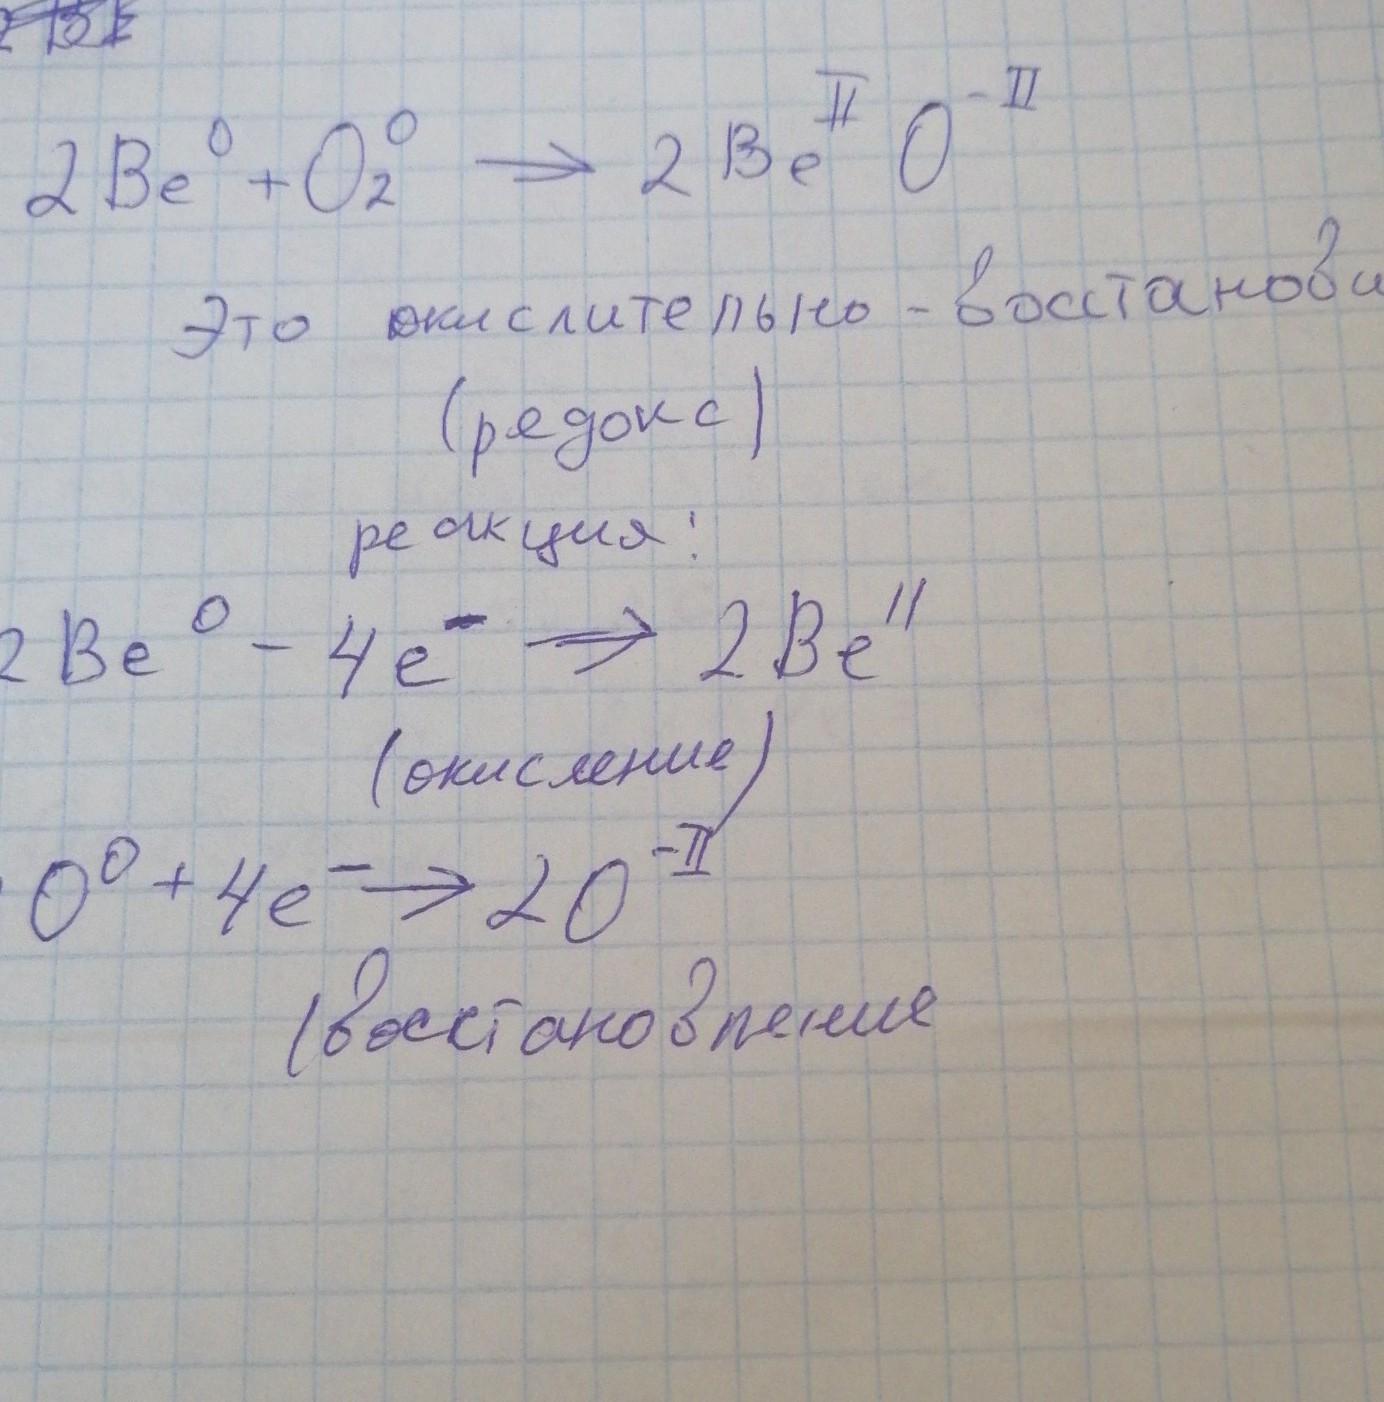 2Be⁰ + O₂⁰ → 2Beᴵᴵ O⁻ᴵᴵ
Это окислительно-восстанови
(редокс)
реакция:
2Be⁰ - 4e⁻ → 2Beᴵᴵ
(окисление)
O⁰ + 4e⁻ → 2O⁻ᴵᴵ
(восстановление